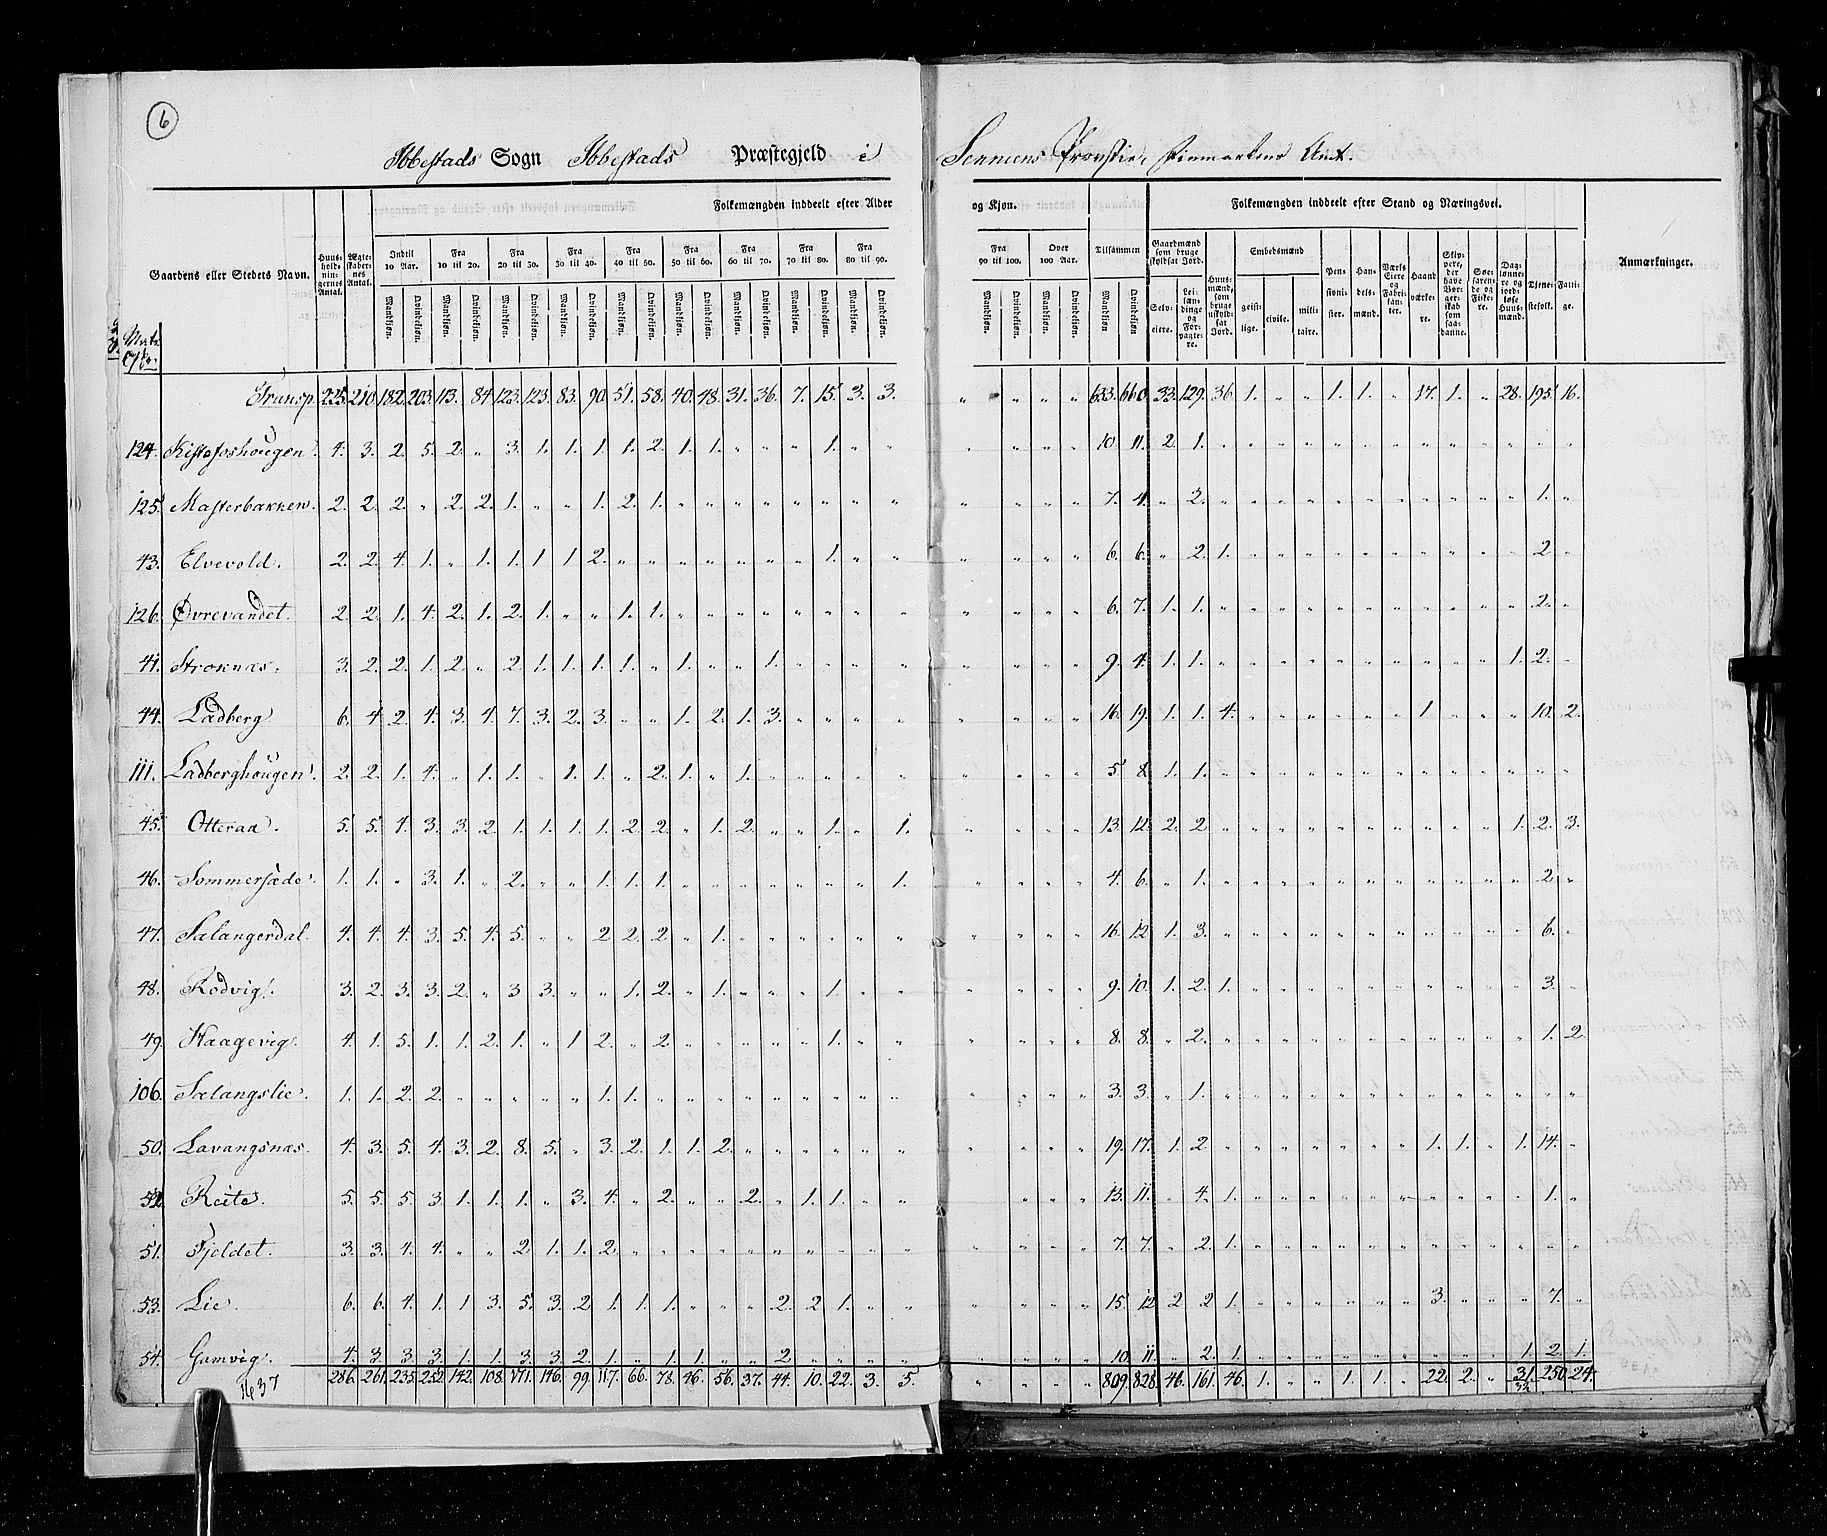 6
Ibbestads Sogn Ibbestads Præstegjeld i Senniens Provstie, Finmarkens Amt.
Gaardens eller Stedets Navn. Huusholdningernes Antal. Ægteskabernes Antal. Folkemængden inddeelt efter Alder og Kjøn. Folkemængden inddeelt efter Stand og Næringsvei. Anmærkninger.
Indtil 10 Aar. Fra 10 til 20. Fra 20 til 30. Fra 30 til 40. Fra 40 til 50. Fra 50 til 60. Fra 60 til 70. Fra 70 til 80. Fra 80 til 90. Fra 90 til 100. Over 100 Aar. Tilsammen
Mandkjøn. Qvindekjøn. Mandkjøn. Qvindekjøn. Mandkjøn. Qvindekjøn. Mandkjøn. Qvindekjøn. Mandkjøn. Qvindekjøn. Mandkjøn. Qvindekjøn. Mandkjøn. Qvindekjøn. Mandkjøn. Qvindekjøn. Mandkjøn. Qvindekjøn. Mandkjøn. Qvindekjøn. Mandkjøn. Qvindekjøn. Mandkjøn Qvindekjøn
Gaardmænd som bruge skyldsat Jord. Selveiere. Leilændinge og Forpagtere. Huusmænd, som bruge uskyldsat Jord. Embedsmænd geistlige. civile. militaire. Pensionister. Handelsmænd. Værks Eiere og Fabrikanter. Haandværkere. Skippere, der have Borgerskab som saadanne. Søefarende og Fiskere. Daglønnere og jordløse Huusmænd. Tjenestefolk. Fattige.
Transp. 225. 210. 182. 203. 113. 84. 123. 123. 83. 90. 51. 58. 40. 48. 31. 36. 7. 15. 3. 3. „ „ „ „ 633. 660. 33. 129. 36. 1. „ „ 1. 1. „ 17. 1. „ 28. 195. 16.
124. Kistefoshougen. 4. 3. 2. 5. 2. „ 3. 1. 1. 1. 1. 2. 1. 1. „ „ „ 1. „ „ „ „ „ „ 10. 11. 2. 1. „ „ „ „ „ „ „ „ „ „ „ „ „
125. Masterbakken. 2. 2. 2. „ 2. 2. 1. „ „ 1. 2. 1. „ „ „ „ „ „ „ „ „ „ „ „ 7. 4. „ 2. „ „ „ „ „ „ „ „ „ „ „ 1. „
43. Elvevold. 2. 2. 4. 1. „ 1. 1. 1 1 2. „ „ „ „ „ „ „ 1. „ „ „ „ „ „ 6. 6. „ 2. 1. „ „ „ „ „ „ „ „ „ „ 2 „
126. Øvrevandet. 2. 2. 1. 4. 2. 1. 2. 1. „ „ 1. 1. „ „ „ „ „ „ „ „ „ „ „ „ 6. 7. 1. 1. „ „ „ „ „ „ „ „ „ „ „ 2. „
41. Stroknæs. 3. 2. 2. 1. 2. „ 2. 1. 1. 1. 1. „ 1. „ „ 1. „ „ „ „ „ „ „ „ 9. 4. 1. 1. „ „ „ „ „ „ „ „ „ „ 1. 2. „
44. Ladberg. 6. 4. 2. 4. 3. 4. 7. 3. 2. 3. „ „ 1. 2. 1. 3. „ „ „ „ „ „ „ „ 16. 19. 1. 1. 4. „ „ „ „ „ „ 1 „ „ „ 10. 2.
111. Ladberghougen. 2. 2. 1. 4. „ 1. 1. „ 1. 1. „ 2. 1. „ 1. „ „ „ „ „ „ „ „ „ 5 8 1. 1. „ „ „ „ „ „ „ „ „ „ „ „ „
45. Otteraa. 5. 5. 4. 3. 3. 2. 1. 1. 1. 1. 2. 2. „ 1. 2. „ „ 1. „ 1. „ „ „ „ 13. 12. 2. 2 „ „ „ „ „ „ „ „ „ „ 1. 2. 3.
46. Sommersæde. 1. 1. „ 3. 1. „ 2. „ „ 1. 1. 1. „ „ „ „ „ „ „ 1. „ „ „ „ 4. 6. „ 1. „ „ „ „ „ „ „ „ „ „ „ 2. „
47. Salangerdal. 4. 4. 4. 3. 5. 4. 5. „ „ 2 2. 2. „ 1. „ „ „ „ „ „ „ „ „ „ 16. 12 1. 3. „ „ „ „ „ „ „ „ „ „ „ 6. „
48. Rodvig. 3. 2. 3. 3. 2. „ 3 3. „ „ 1. 2. „ 1. „ „ „ 1. „ „ „ „ „ „ 9. 10. 1. 2. 1. „ „ „ „ „ „ „ „ „ „ 3. „
49. Haagevig. 4. 1. 5. 1. 1. 2. 1. „ 1 2. „ 2. „ „ „ „ „ 1. „ „ „ „ „ „ 8. 8. „ 2. „ „ „ „ „ „ „ „ „ „ „ 1. 2
106. Salangslie. 1. 1. 2. 2. „ „ „ „ „ 1. 1. „ „ „ „ „ „ „ „ „ „ „ „ „ 3. 3. „ 1. „ „ „ „ „ „ „ „ „ „ „ „ „
50. Lavangsnæs. 4. 3. 5. 4. 3. 2. 8. 5. „ 3. 2. 1. 1. 2. „ „ „ „ „ „ „ „ „ „ 19. 17. 1. 2 „ „ „ „ „ „ „ 1. 1. „ 1. 14. „
52. Reite. 5. 5. 5. 3. 1. 1. 1. „ 3. 4. „ 2. „ „ 2. „ 1. 1. „ „ „ „ „ „ 13. 11. „ 4. 1. „ „ „ „ „ „ „ „ „ „ 1. „
51. Fjeldet. 3. 3. 4. 4. „ „ 2 1. 1. 2. „ „ „ „ „ „ „ „ „ „ „ „ „ „ 7. 7. „ 2. 1. „ „ „ „ „ „ „ „ „ „ „ „
53. Lie. 6. 6. 4. 1. 1 3. 5. 3. 2 1. 1. 1. „ „ „ 2. 2. 1. „ „ „ „ „ „ 15. 12 2 2 1. „ „ „ „ „ „ 3. „ „ „ 7. „
54. Gamvig. 4. 3. 3. 3. 1. 1. 3. 3. 2. 1. „ 1. 1. „ „ 2. „ „ „ „ „ „ „ „ 10. 11. „ 2. 1. „ „ „ „ „ „ „ „ „ 1. 2. 1.
1637 286. 261. 235. 252. 142. 108. 171. 146. 99. 117. 66. 78. 46. 56. 37. 44. 10. 22. 3. 5. „ „ „ „ 809. 828. 46. 161. 46. 1. „ „ 1. 1. „ 22. 2. „ 31. 250. 24.